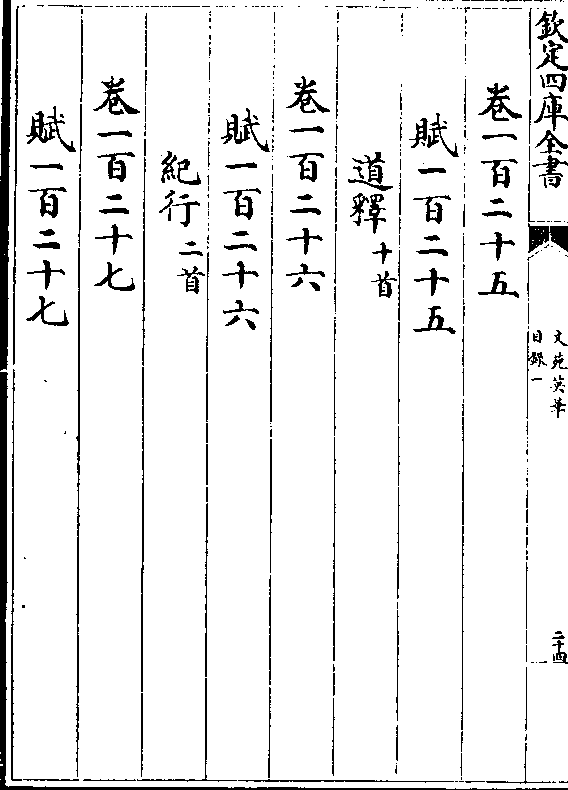 欽定四庫全書
文苑英華
目録一
二十四
卷一百二十五
賦一百二十五
道釋十首
卷一百二十六
賦一百二十六
紀行二首
卷一百二十七
賦一百二十七